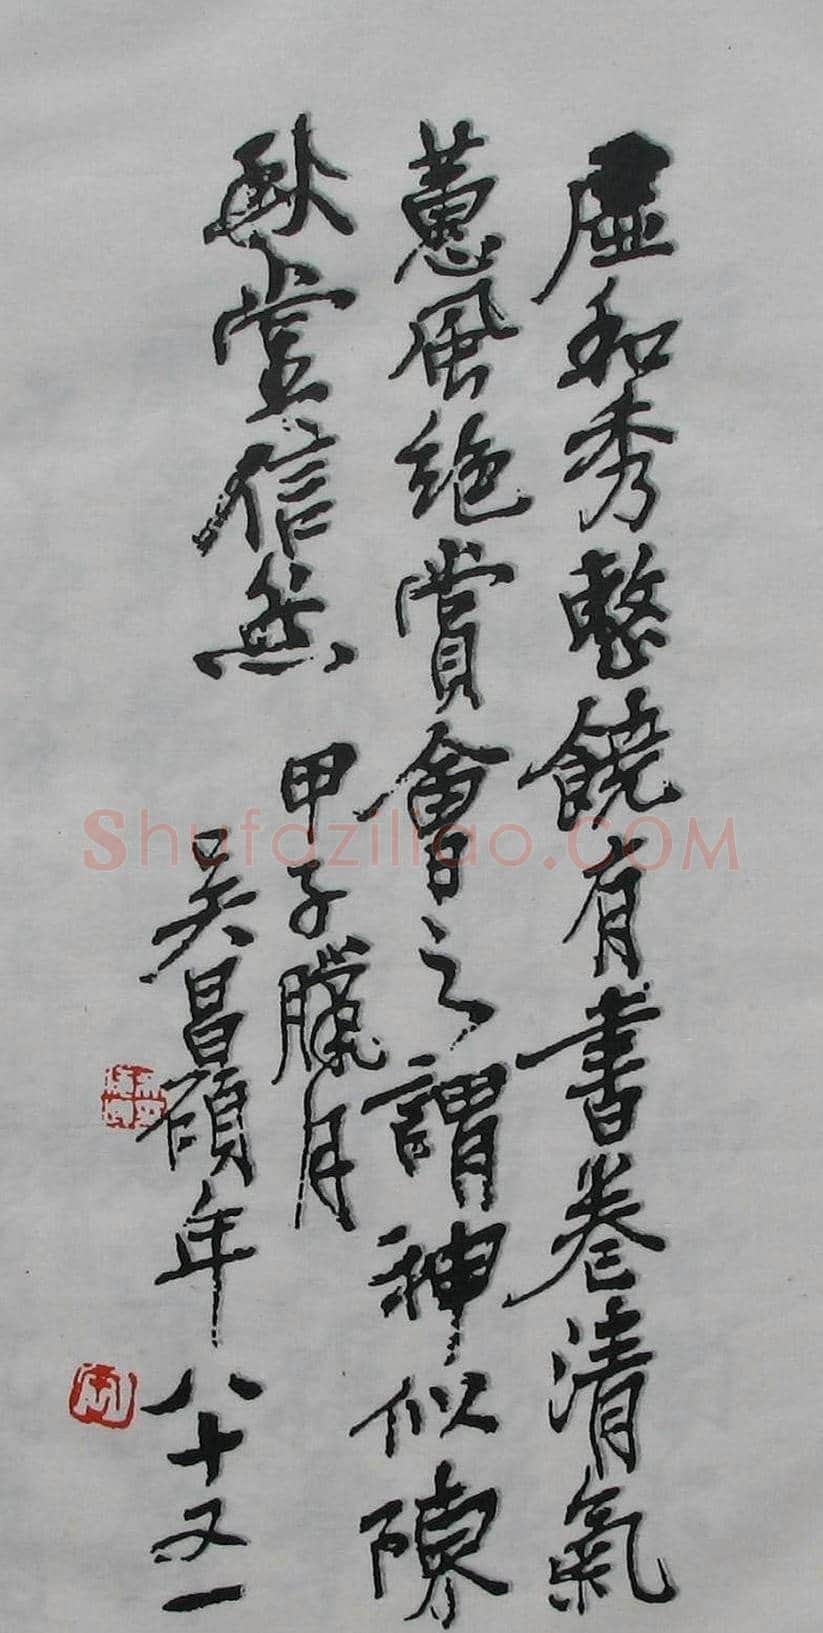 虚和秀整饒有書卷清氣
蕙風絶賞會之謂神似陳
秋堂信然
甲子臘月
吴昌碩年八十又一
Shufaziliao.COM